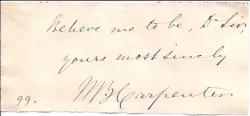 Believe me to be, Dr Sir,
yours most sincly
WB Carpenter
99.